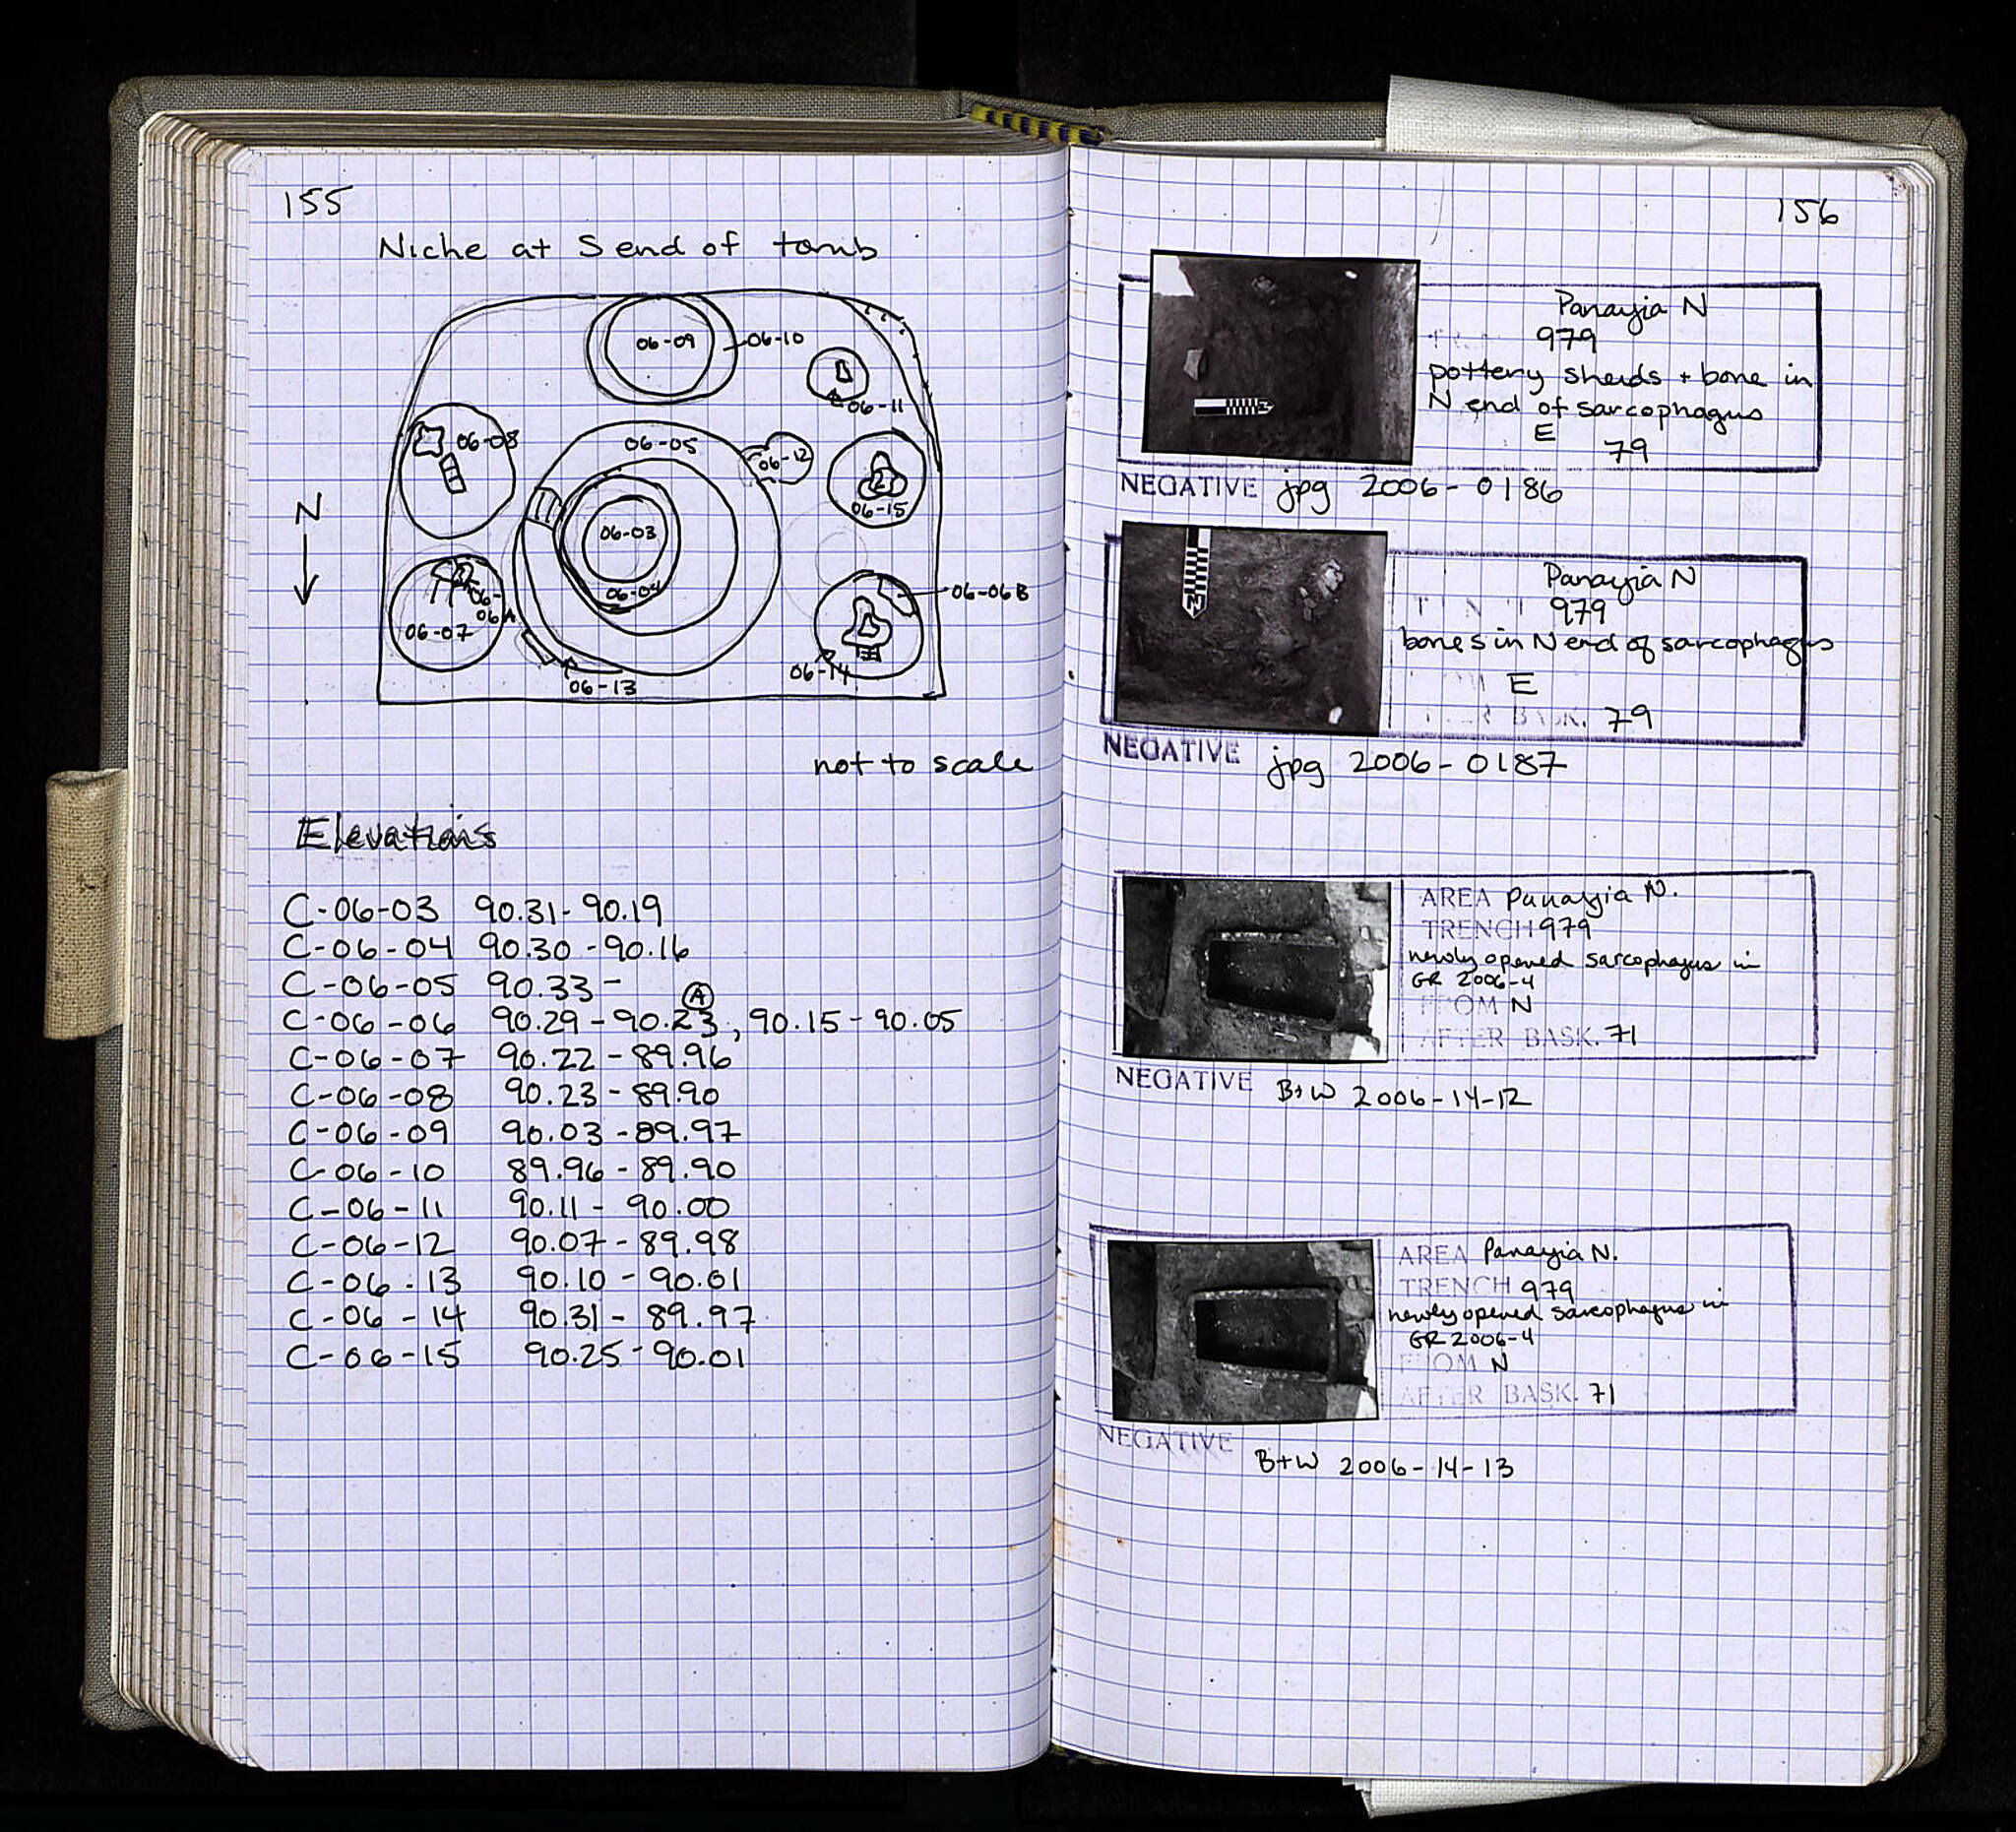 155
Niche at S end of tomb
06-09
06-10
06-11
06-08
06-05
06-12
06-15
N
06-03
06-04
06-06A
06-07
06-06B
06-14
06-13
not to scale
Elevations
C-06-03 90.31-90.19
C-06-04 90.30-90.16
C-06-05 90.33-
A
C-06-06 90.29-90.23, 90.15-90.05
C-06-07 90.22-89.96
C-06-08 90.23-89.90
C-06-09 90.03-89.97
C-06-10 89.96-89.90
C-06-11 90.11-90.00
C-06-12 90.07-89.98
C-06-13 90.10-90.01
C-06-14 90.31-89.97
C-06-15 90.25-90.01
156
Panayia N
979
pottery sherds + bone in
N end of sarcophagus
E
79
NEGATIVE jpg 2006-0186
Panayia N
979
bones in N end of sarcophagus
E
BASK. 79
NEGATIVE jpg 2006-0187
AREA Panayia N.
TRENCH 979
newly opened sarcophagus in
GR 2006-4
FROM N
AFTER BASK. 71
NEGATIVE B+W 2006-14-12
AREA Panayia N.
TRENCH 979
newly opened sarcophagus in
GR 2006-4
FROM N
AFTER BASK. 71
NEGATIVE
B+W 2006-14-13